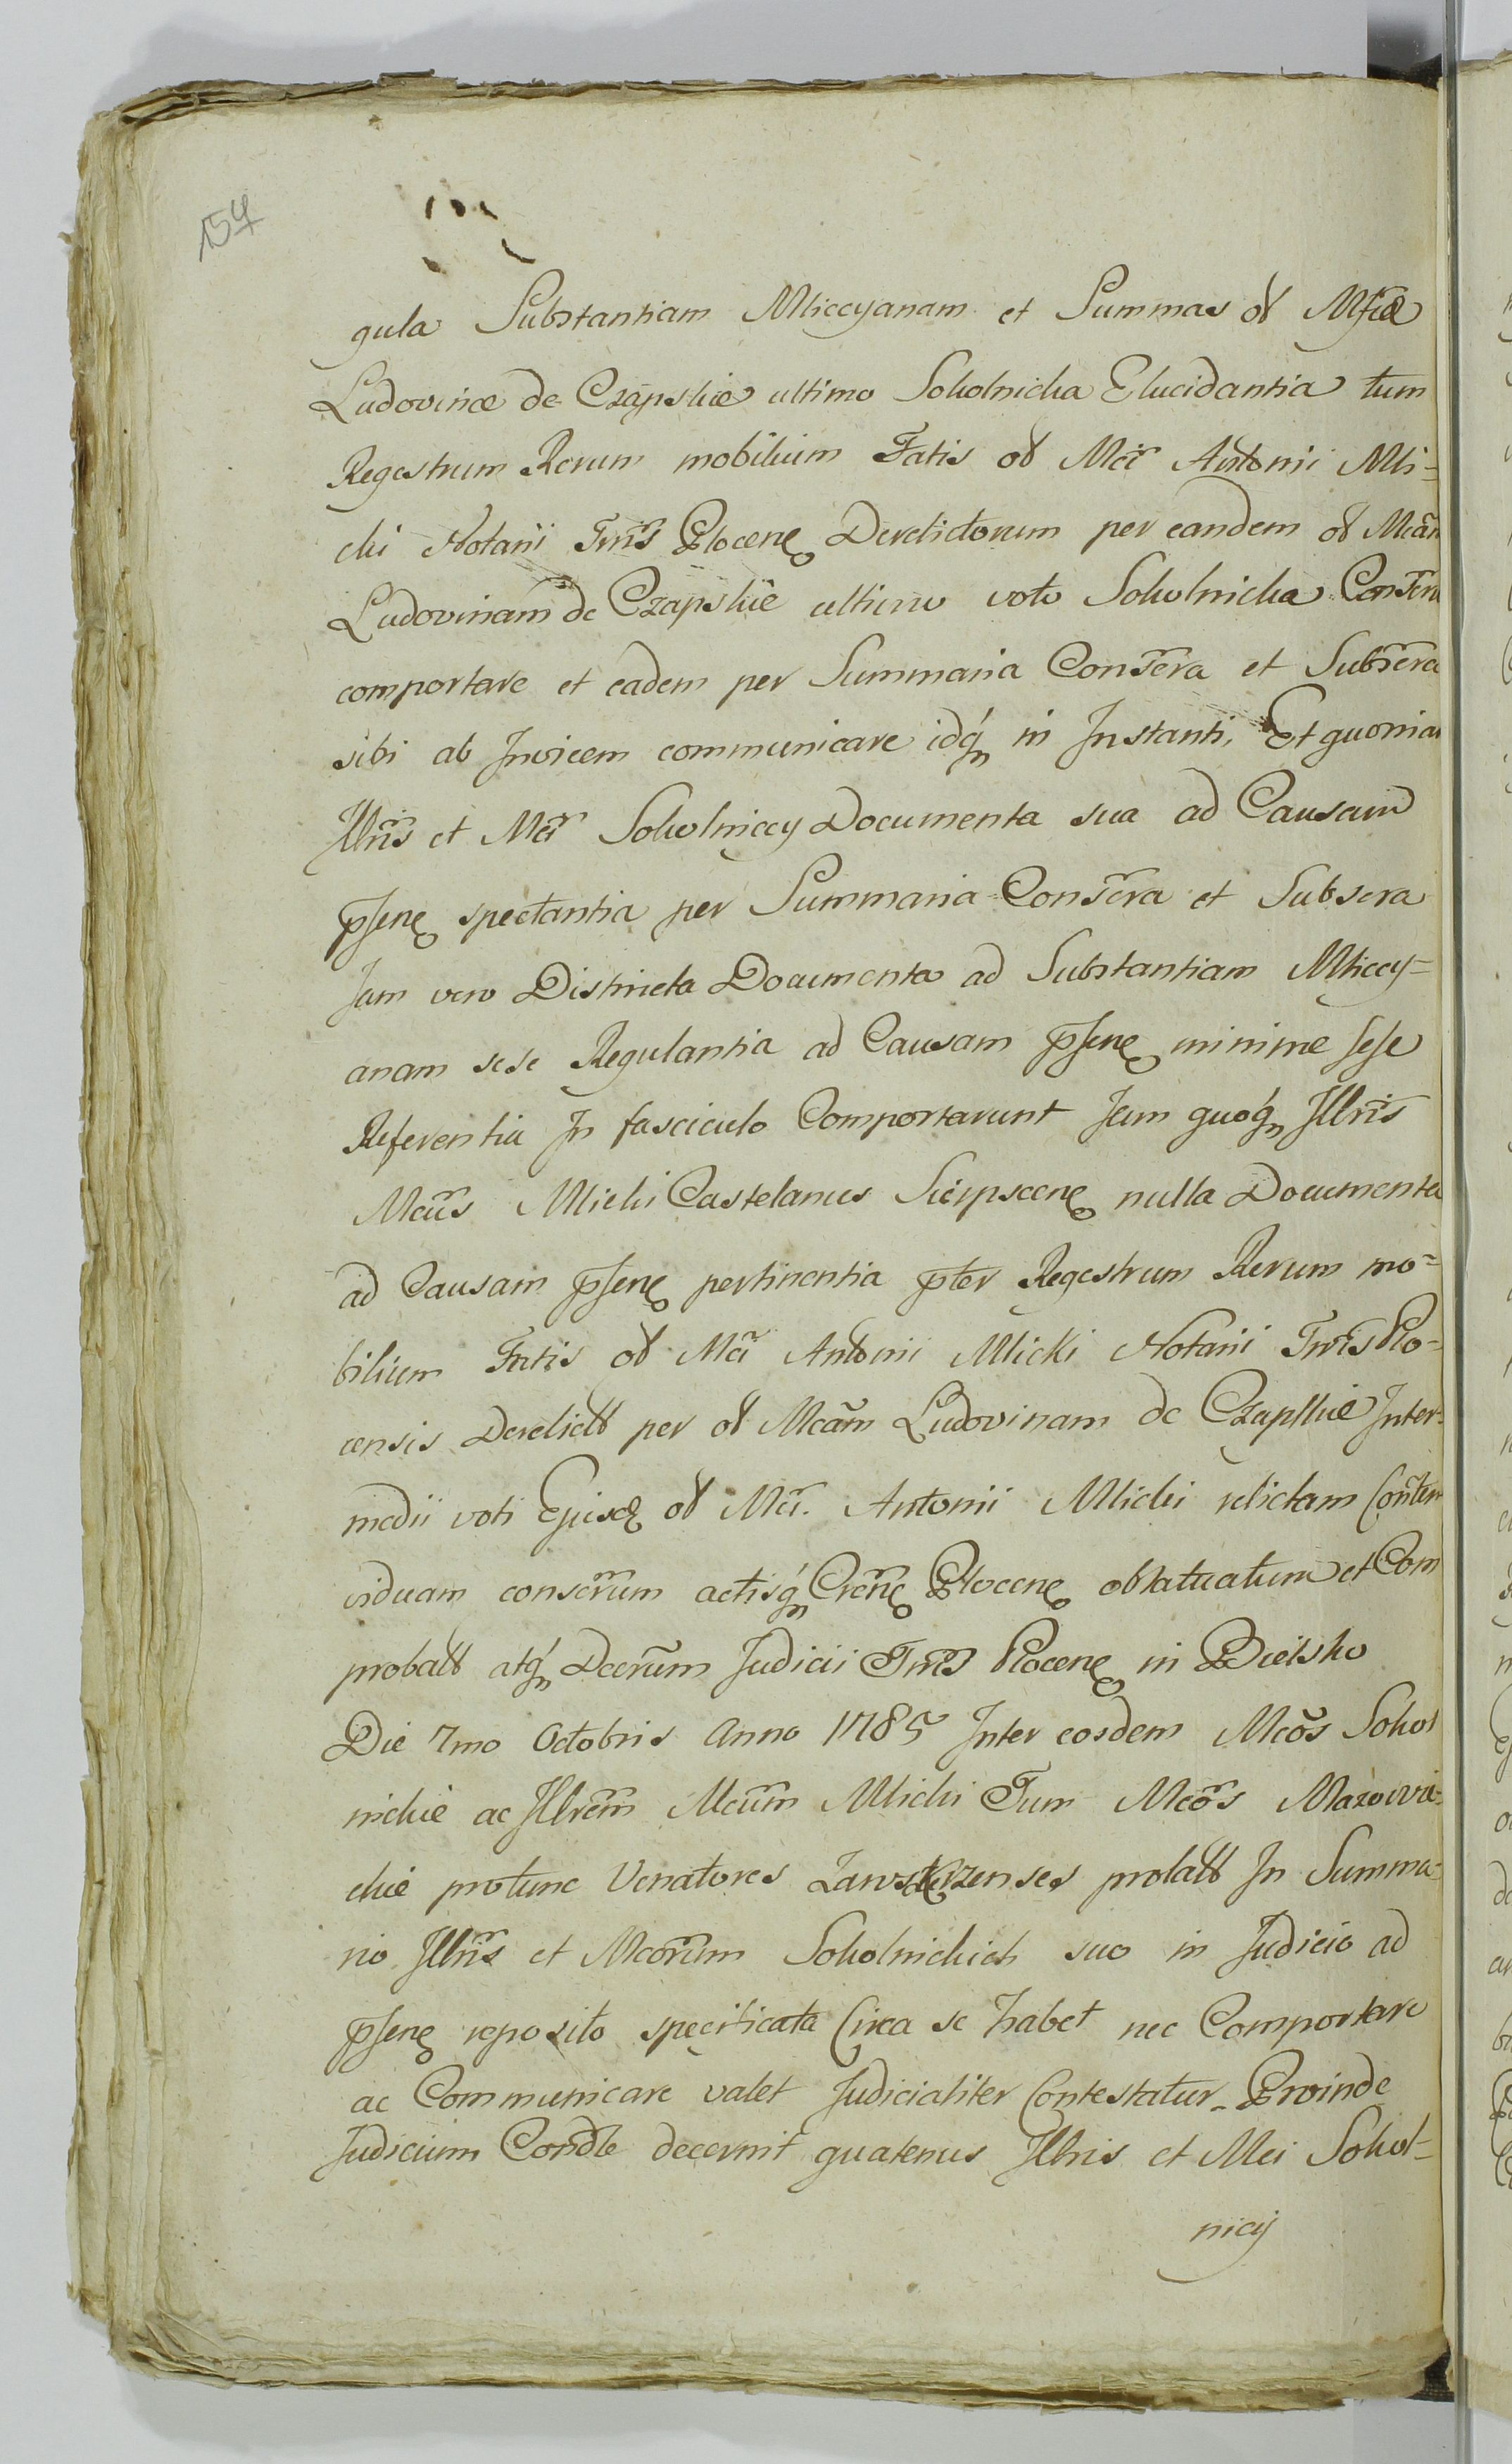 154
gula Substantiam Mliccyanam et Summas olę Mficæ
Ludovinæ de Czapskie ultimo Sokolnicka Elucidantia tum
Regestrum Rerum mobilium Fatis olę Mci Antonii Mli-
cki Notarii Trris Plocenę Derelictorum per eandem olę Mcãm
Ludovinam de Czapskie ultimo voto Sokolnicka
comportare et eadem per Summaria Conscra et Subscra
sibi ab Invicem communicare idq in Instanti, Et quoniam
Illris et Mci Sokolniccy Documenta sua ad Causam
psenę spectantia per Summaria Conscra et Subscra
Jam vero Distincta Documenta ad Substantiam Mliccy=
anam sese Regulantia ad Causam psenę minime sese
Referentia In fasciculo Comportarunt Jam quoq Illris
Mcus Mlicki Castelanus Sierpscenę nulla Documenta
ad Causam psenę pertinentia pter Regestrum Rerum mo=
bilium Fatis olę Mci Antonii Mlicki Notarii Trris Plo-
censis Derelictt per olę Mcãm Ludovinam de Czapskie Inter-
medii voti Ejusdę olę Mci. Antonii Mlicki relictam
viduam conscrum actisq Crenę Plocenę oblatuatum et Com
probatt atq Decrum Judicii Trris Plocenę in Bielsko
Die 7mo Octobris Anno 1785 Inter eosdem Mcõs Sokol
nickie ac Illrem Mcum Mlicki Tum Mcõs Mazowie-
ckie protunc Venatores Zawskrzenses prolatt In Summa-
rio Illris et Mcorum Sokolnickich suo in Judicio ad
psenę reposito specificata Circa se habet nec Comportare
ac Communicare valet Judicialiter Contestatur. Proinde
Judicium Condle decernit quatenus Illris et Mci Sokol-
nicy